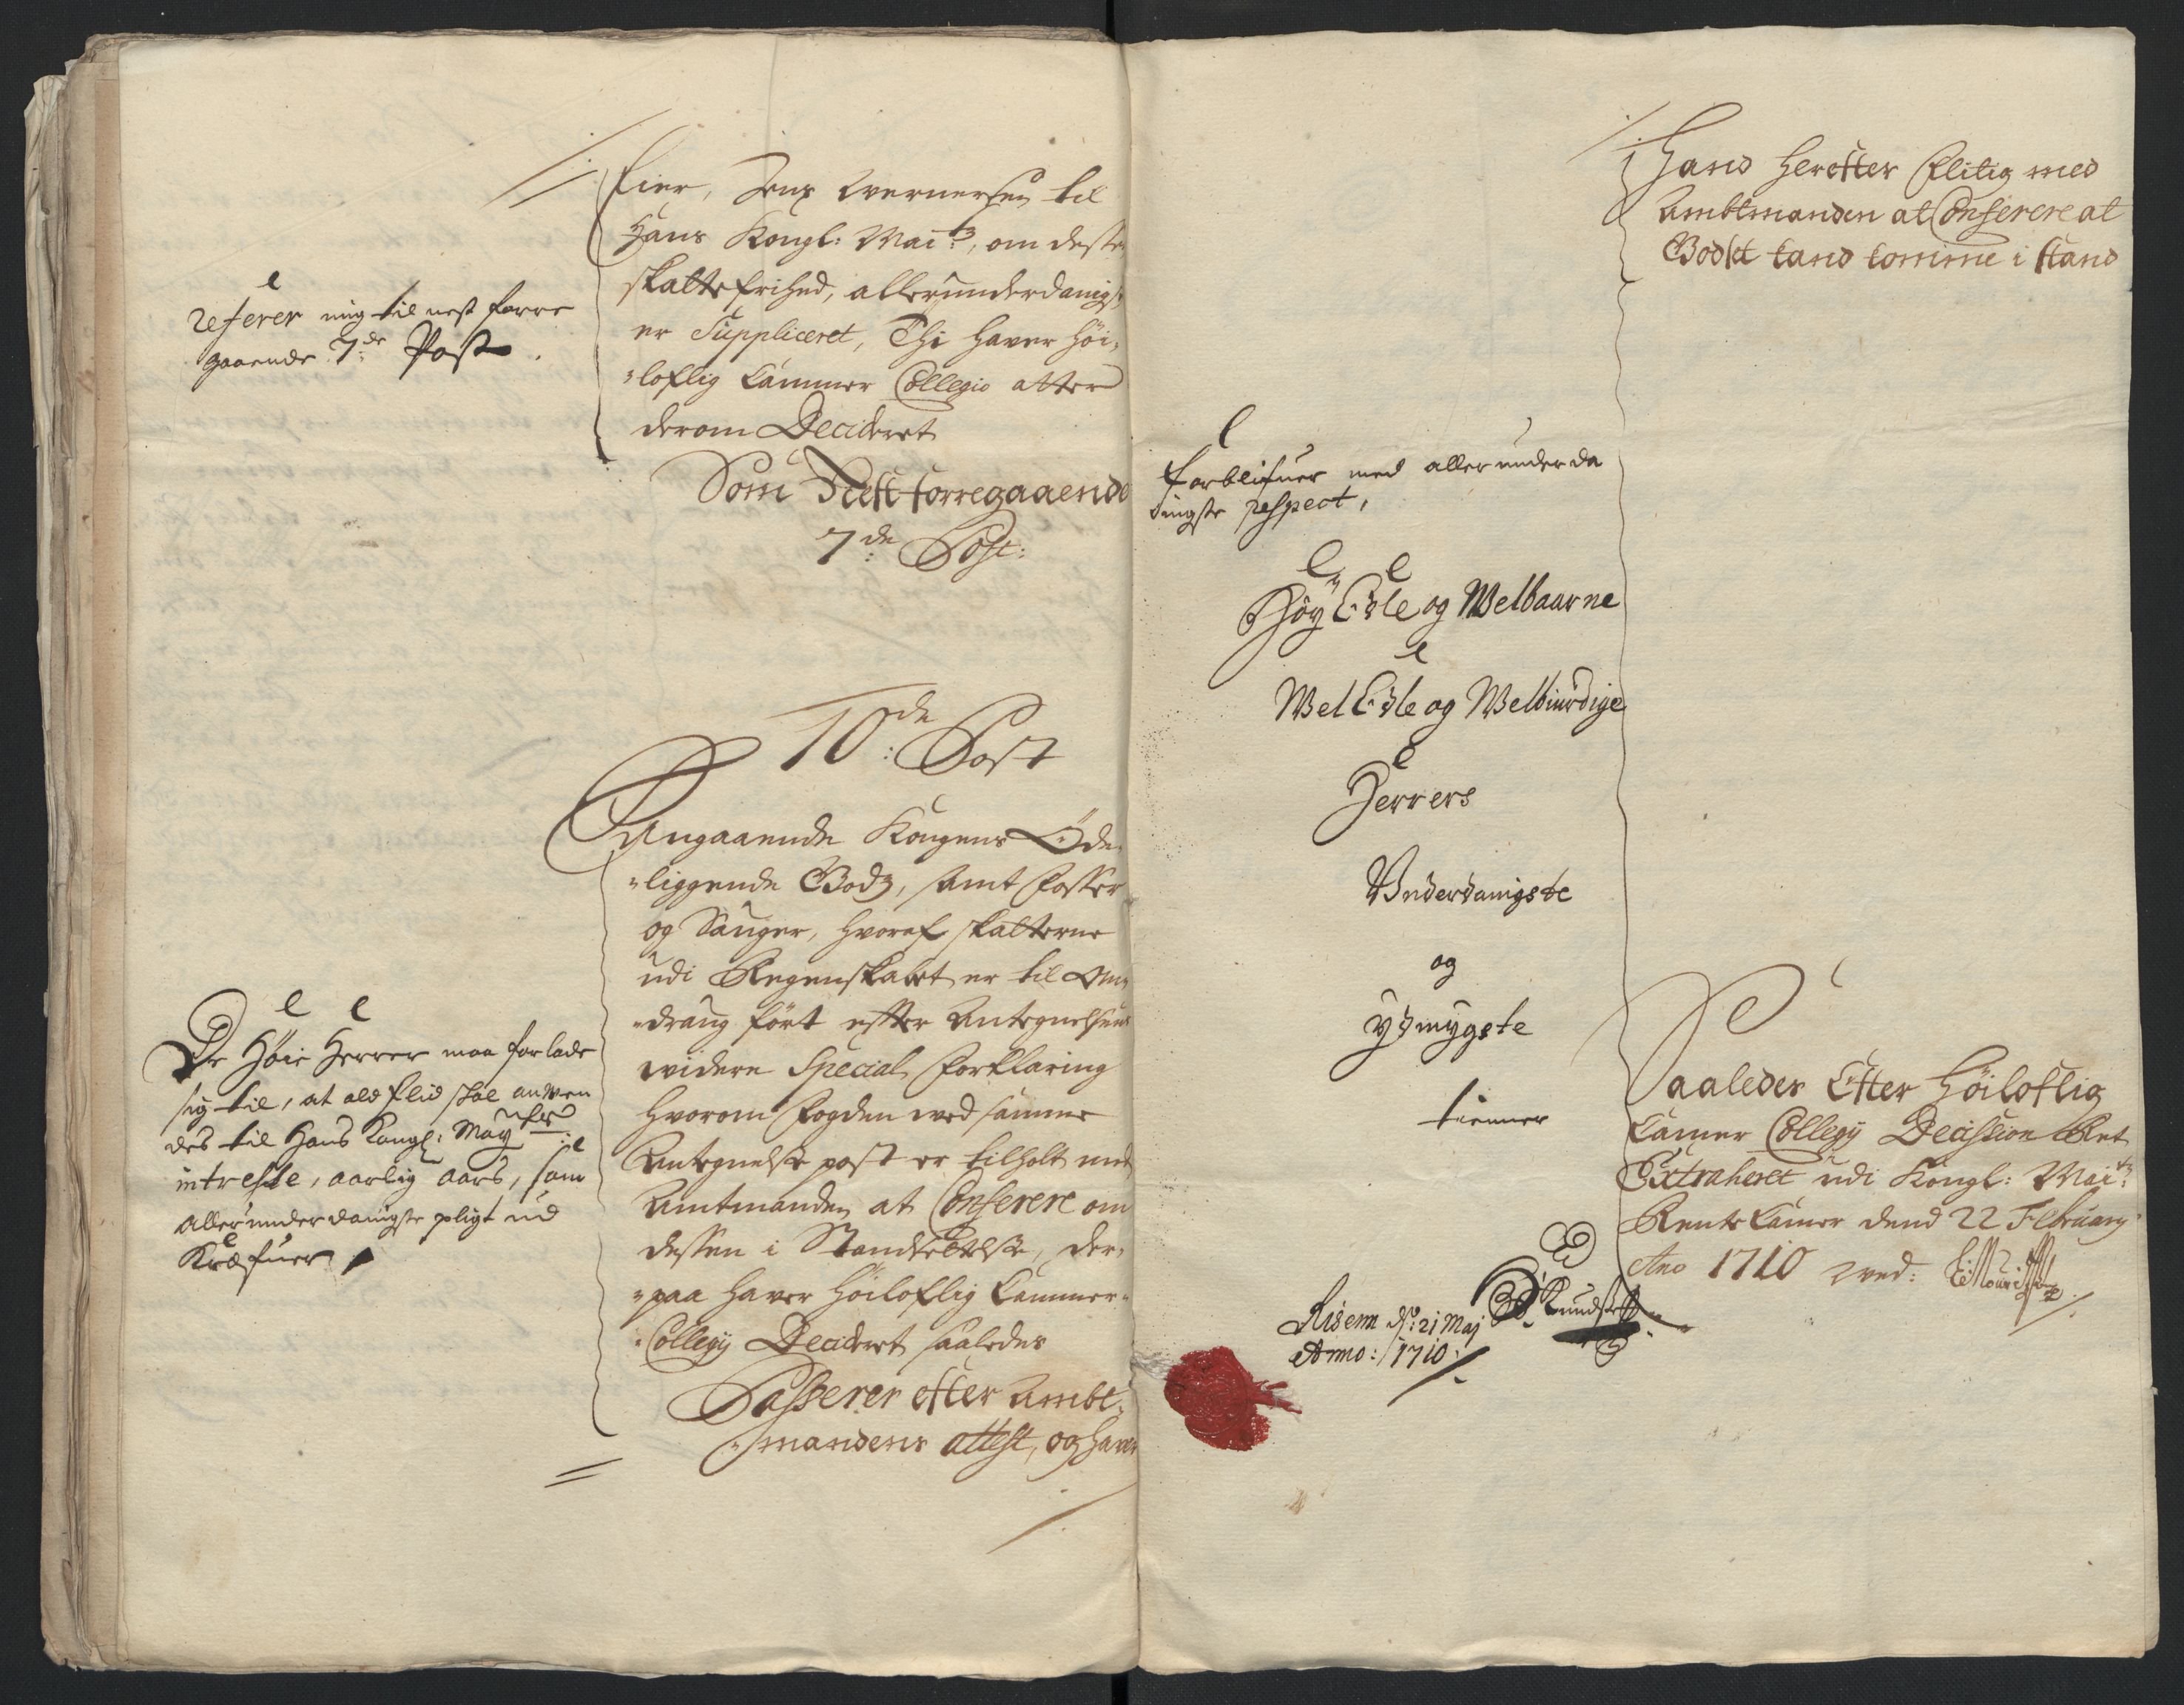 referer mig til nest forre
gaaende 7de Post.
fier, Jens Wernersen til
Hans Kongl: Mait:, om desse
skatte frihed, allerunderdanigst
er Suppliceret, Thi haver Høi-
-loflig Cammer Collegio atter
derom Decideret
Som Nest forregaaende
7de Post:
10de: Post
Angaaende Kongens Øde-
-liggende Godz, samt Fosser
og Sauger, hvoraf skatterne
udi Regenskabet er til
-drag ført efter Antegnelsens
widere Special Forklaring
hvorom Fogden wed samme
Antegnelse post er tilholt med
Amtmanden at Conferere om
dessen i Standsettelse, der-
-paa haver Høiloflig Cammer-
-Collegij Decideret saaledes
Passerer efter Ambt-
-mandens attest, og haver
De Høie Herrer maa forlade
sig til, at ald flid skal anwen
des til Hans Kongl: Mayts
intresse, aarlig aars, som
allerunderdanigste pligt ud
kræfuer
Hand herefter flitig med
Ambtmanden at Conferere at
Godset kand komme i stand
forblifuer med allerunderda
nigste respect,
Høy Edle og Welbaarne
Wel Edle og Welbiurdige
Herrers
Underdanigste
og
ydmygste
tienner
Knudsen
Risem d: 21 Maj
Anno: 1710.
Saaledes Efter Høiloflig
Camer Collegij Decission Ret
Extraheret udi Kongl: Mait:
Rente Camer dend 22 February
Ano 1710 wed: